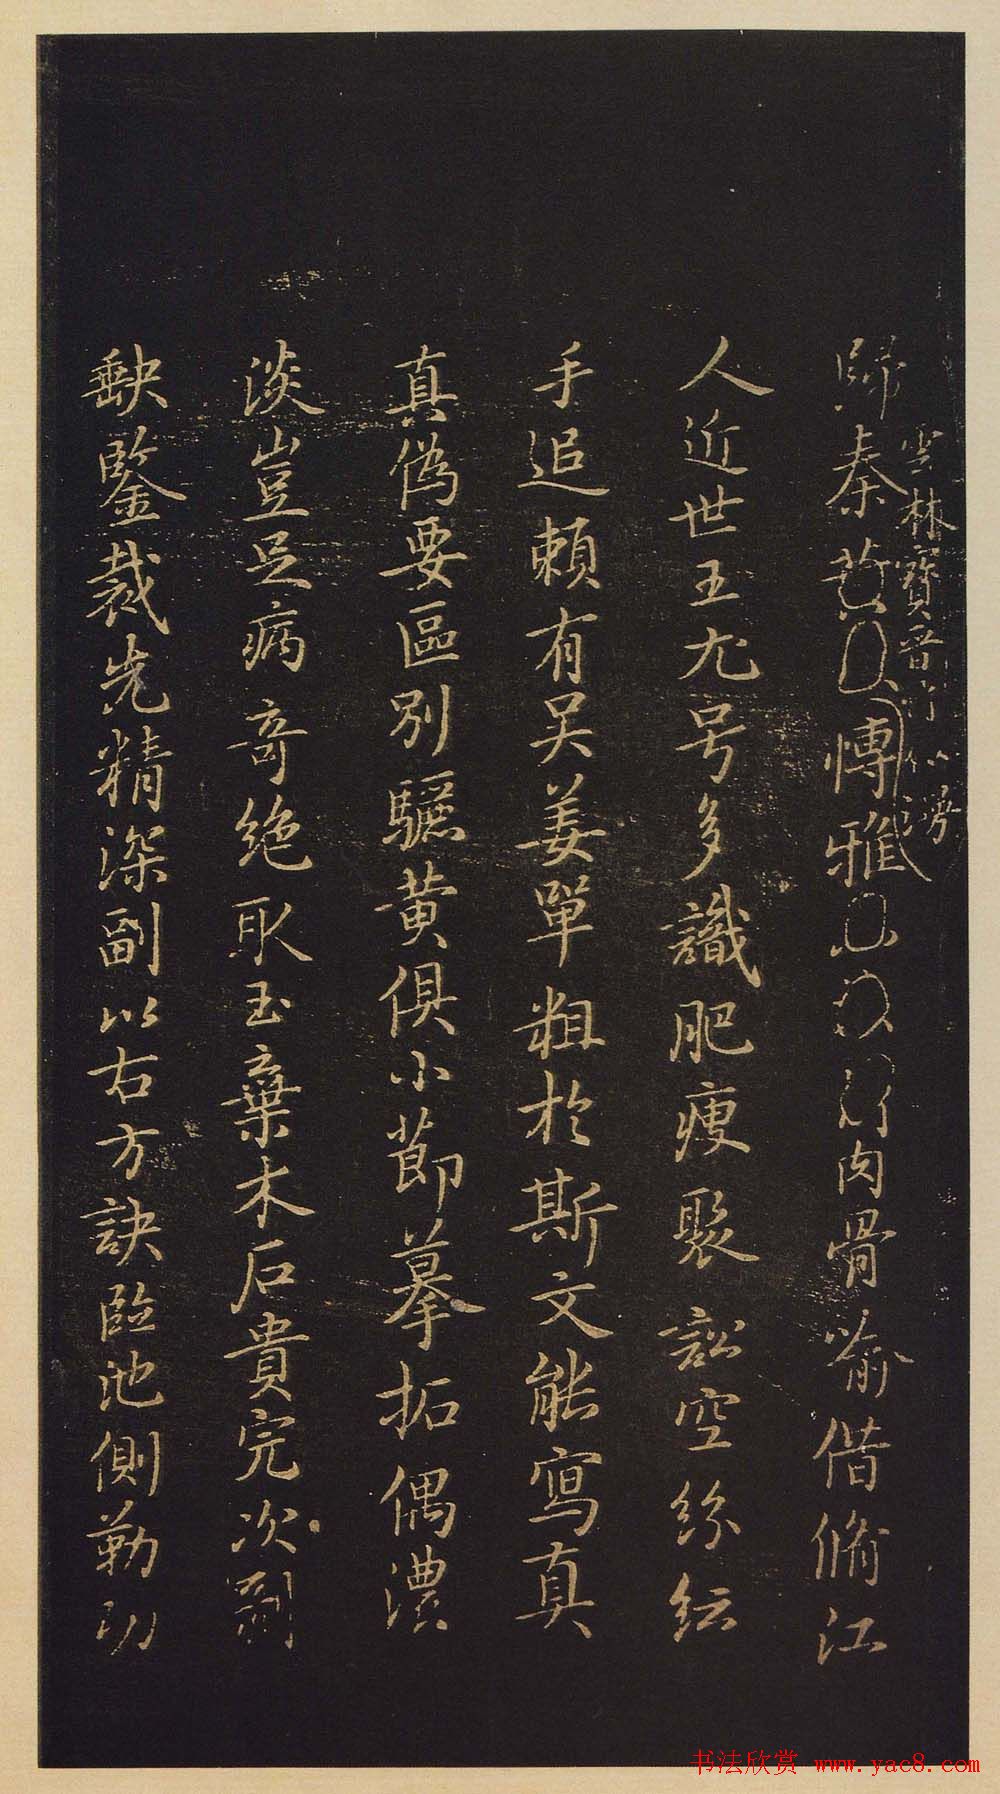 歸秦黃傅雅肉骨喻借脩江
雲林寶晉
人近世王尤号多識肥瘦聚訟空紛紜
手追賴有吴姜單粗於斯文能寫真
真僞要區別驪黄俱小節摹拓偶濃
淡豈足病奇絶取玉棄木石貴完次剜
缺鑒裁先精深副以右方訣臨池側勒功
书法欣赏 www.yac8.com